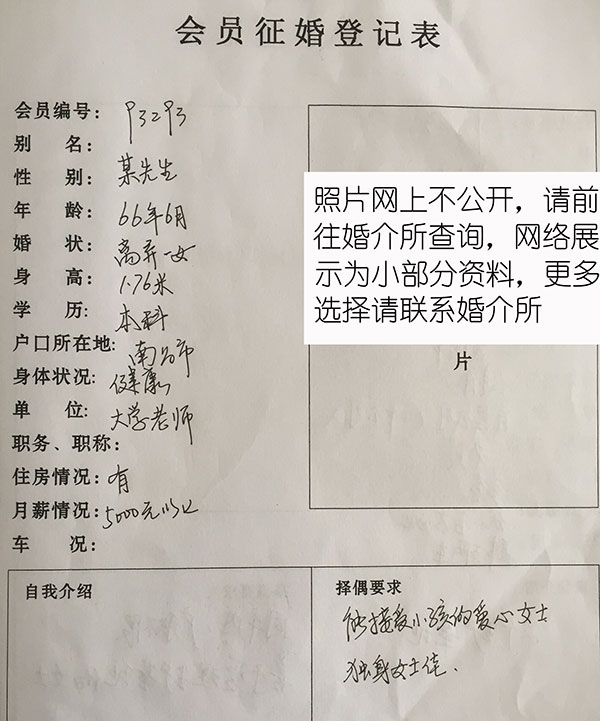 会员征婚登记表
会员编号: P32P3
别 名:
性 别: 某先生
年 龄: 66年6月
婚 状: 离异一女
身 高: 1.76米
学 历: 本科
户口所在地: 南昌市
身体状况: 健康
单 位: 大学老师
职务、职称:
住房情况: 有
月薪情况: 5000元以上
车 况:
照片网上不公开，请前
往婚介所查询，网络展
示为小部分资料，更多
选择请联系婚介所
片
自我介绍
择偶要求
能接受小孩的爱心女士
独身女士佳.